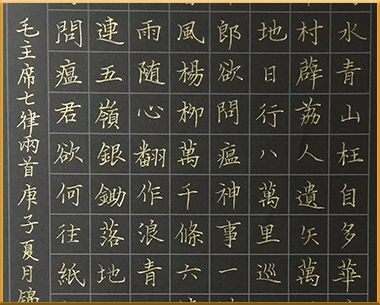 水青山枉自多華
村薜荔人遺矢萬
地日行八萬里巡
郎欲問瘟神事一
風楊柳萬千條六
雨随心翻作浪青
連五嶺銀鋤落地
問瘟君欲何往紙
毛主席七律兩首庚子夏月錦